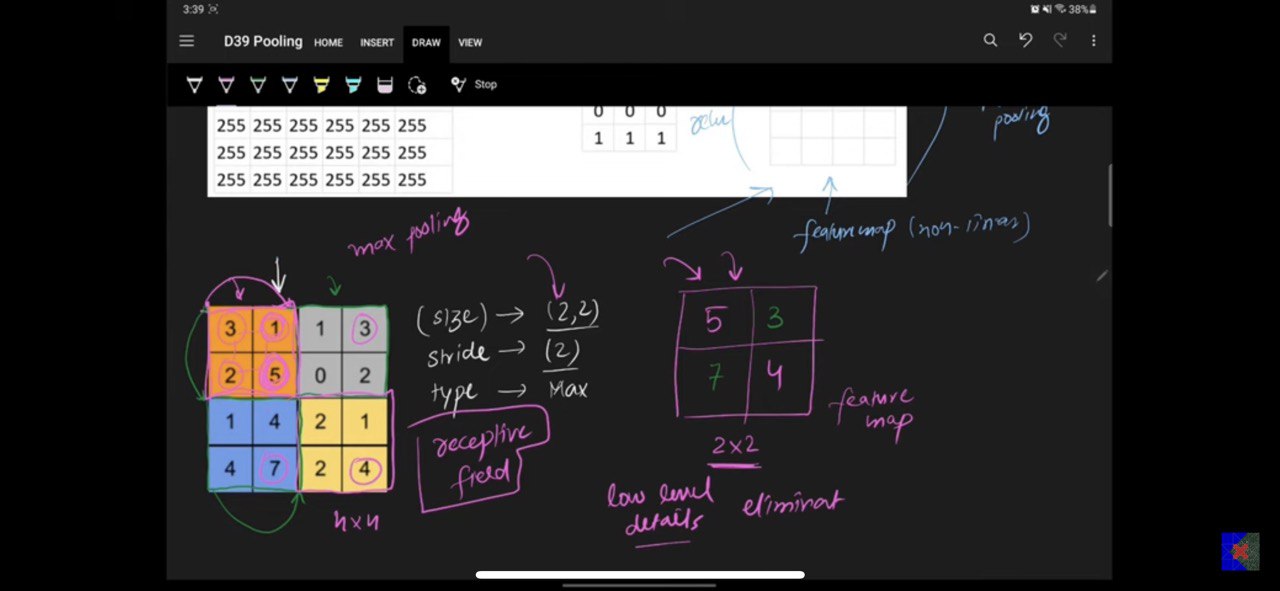 3:39
38%
D39 Pooling HOME INSERT DRAW VIEW
Stop
255 255 255 255 255 255
255 255 255 255 255 255
255 255 255 255 255 255
0 0 0
1 1 1
pooling
feature map (non-linear)
max pooling
3 1 1 3
2 5 0 2
1 4 2 1
4 7 2 4
(size) → (2,2)
stride → (2)
type → Max
receptive
field
5 3
7 4
2×2
feature
map
low level
details
eliminat